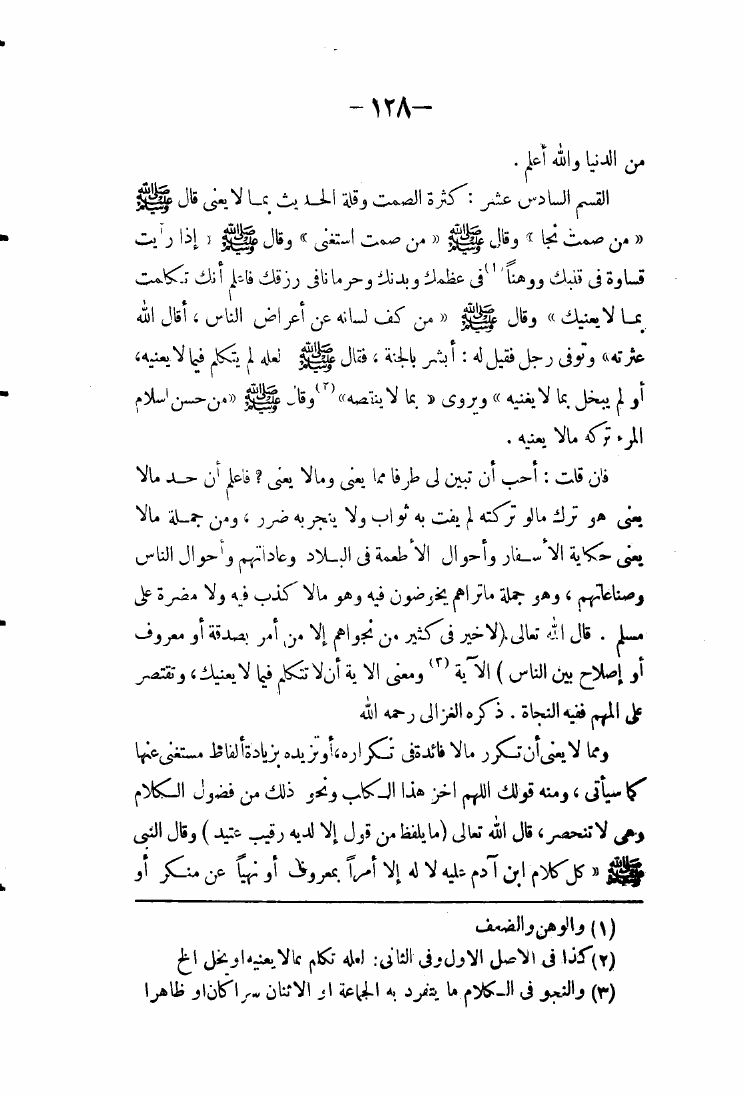 —١٢٨—
من الدنيا والله أعلم .
القسم السادس عشر : كثرة الصمت وقلة الحديث بمـا لا يعنى قال ﷺ
« من صمت نجا » وقال ﷺ « من صمت استغنى » وقال ﷺ « إذا رأيت
قساوة فى قلبك ووهناً (١) فى عظمك وبدنك وحرمانا فى رزقك فاعلم أنك تكلمت
بمـا لا يعنيك » وقال ﷺ « من كف لسانه عن أعراض الناس ، أقال الله
عثرته» وتوفى رجل فقيل له : أبشر بالجنة ، فقال ﷺ لعله لم يتكلم فيما لا يعنيه،
أو لم يبخل بما لا يغنيه » ويروى « بما لا ينقصه» (٢) وقال ﷺ «من حسن اسلام
المرء تركه مالا يعنيه .
فان قلت : أحب أن تبين لى طرفا مما يعنى ومالا يعنى ؟ فاعلم أن حـد مالا
يعنى هو ترك مالو تركته لم يفت به ثواب ولا ينجر به ضرر ، ومن جمـلة مالا
يعنى حكاية الأسـفار وأحوال الأطعمة فى البـلاد وعاداتهم وأحوال الناس
وصناعاتهم ، وهو جملة ماتراهم يخوضون فيه وهو مالا كذب فيه ولا مضرة على
مسلم . قال الله تعالى (لاخير فى كثير من نجواهم إلا من أمر بصدقة أو معروف
أو إصلاح بين الناس ) الآية (٣) ومعنى الاية أن لا تتكلم فيما لا يعنيك ، وتقتصر
على المهم ففيه النجاة . ذكره الغزالى رحمه الله
ومما لا يعنى أن تكرر مالا فائدة فى تكراره، أو تزيده بزيادة ألفاظ مستغنى عنها
كما سيأتى ، ومنه قولك اللهم اخز هذا الـكلب ونحو ذلك من فضول الـكلام
وهى لا تنحصر، قال الله تعالى (ما يلفظ من قول إلا لديه رقيب عتيد ) وقال النبى
ﷺ « كل كلام ابن آدم عليه لا له إلا أمراً بمعروف أو نهياً عن منـكر أو
(١) والوهن والضعف
(٢) كذا فى الاصل الاول وفى الثانى : لعله تكلم بمالا يعنيه او بخل الخ
(٣) والنجو فى الـكلام ما يتفرد به الجماعة او الاثنان سرا كان او ظاهرا